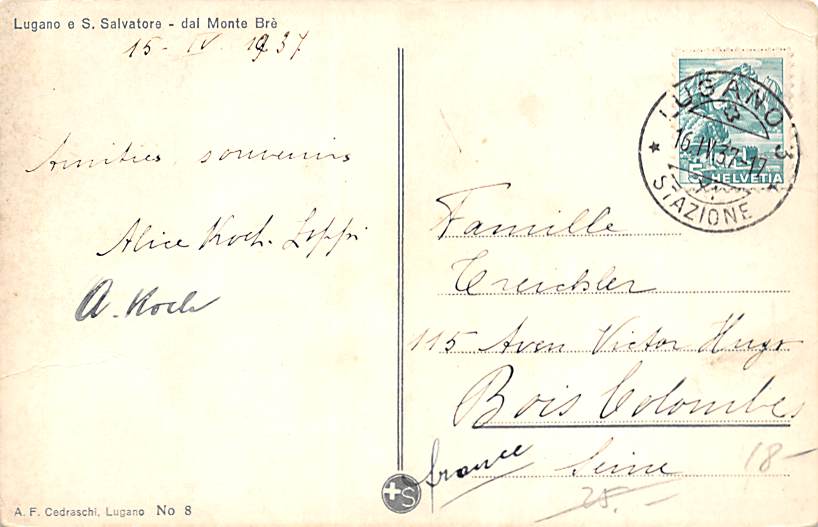 Lugano e S. Salvatore - dal Monte Brè
15 - IV 1937
Amitiés souvenirs
Alice Koch-Seppi
A. Koch
A. F. Cedraschi, Lugano No 8
+S
LUGANO 3
16.IV.37-17
STAZIONE
5 HELVETIA
Famille
Treichler
115 Aven Victor Hugo
Bois Colombes
Seine
france
18-
25.-